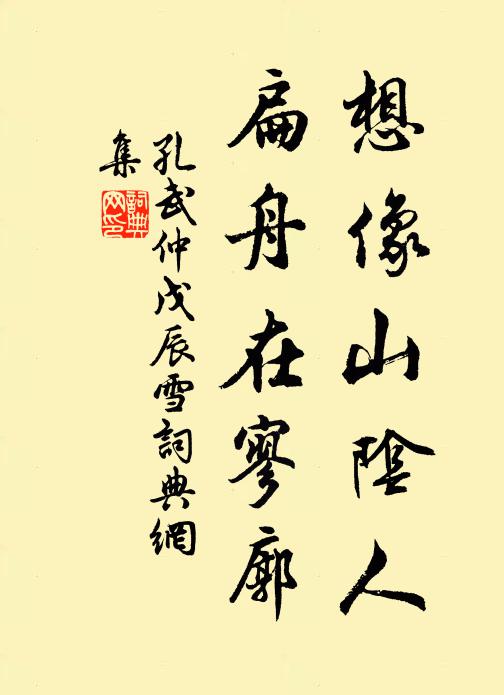 想像山陰人
扁舟在寥廓
孔武仲戊辰雪詞典網
集
詞典
网印